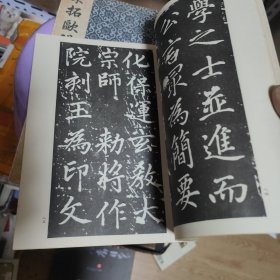 學之士並進而
公
為簡要
化保運玄教大
宗師 勅將作
院刻玉為印文
拓歐